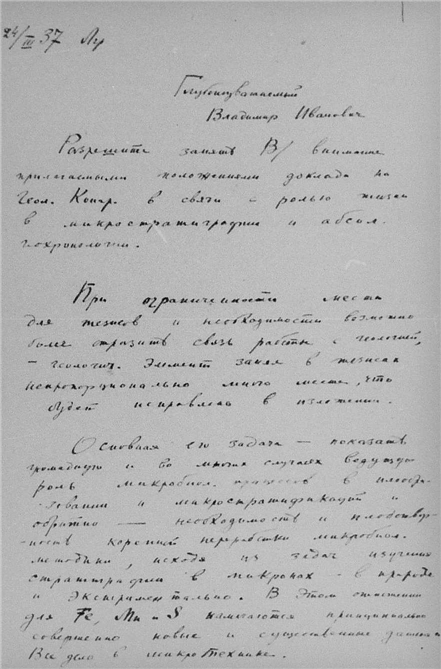 24/III 37 Лгр
Глубокоуважаемый
Владимир Иванович
Разрешите занять В/ внимание
прилагаемыми положениями доклада на
Геол. Конгр. в связи с ролью жизни
в микростратиграфии и абсол.
геохронологии.
При ограниченности места
для тезисов и необходимости возможно
более отразить связь работы с геологией,
– геологич. Элемент занял в тезисах
непропорционально много места, что
будет исправлено в изложении.
Основная его задача – показать
громадную и во многих случаях ведущую
роль микробиол. процессов в илообра-
зовании и микростратификации и
обратно — необходимость и плодотвор-
ность коренной переработки микробиол.
методики, исходя из задач изучения
стратиграфии в микронах - в природе
и экспериментально. В этом отношении
для Fe, Mn и S намечаются принципиально
совершенно новые и существенные данные
Все дело в микротехнике.